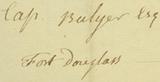 Cap. Bulger Esq
Fort Douglass